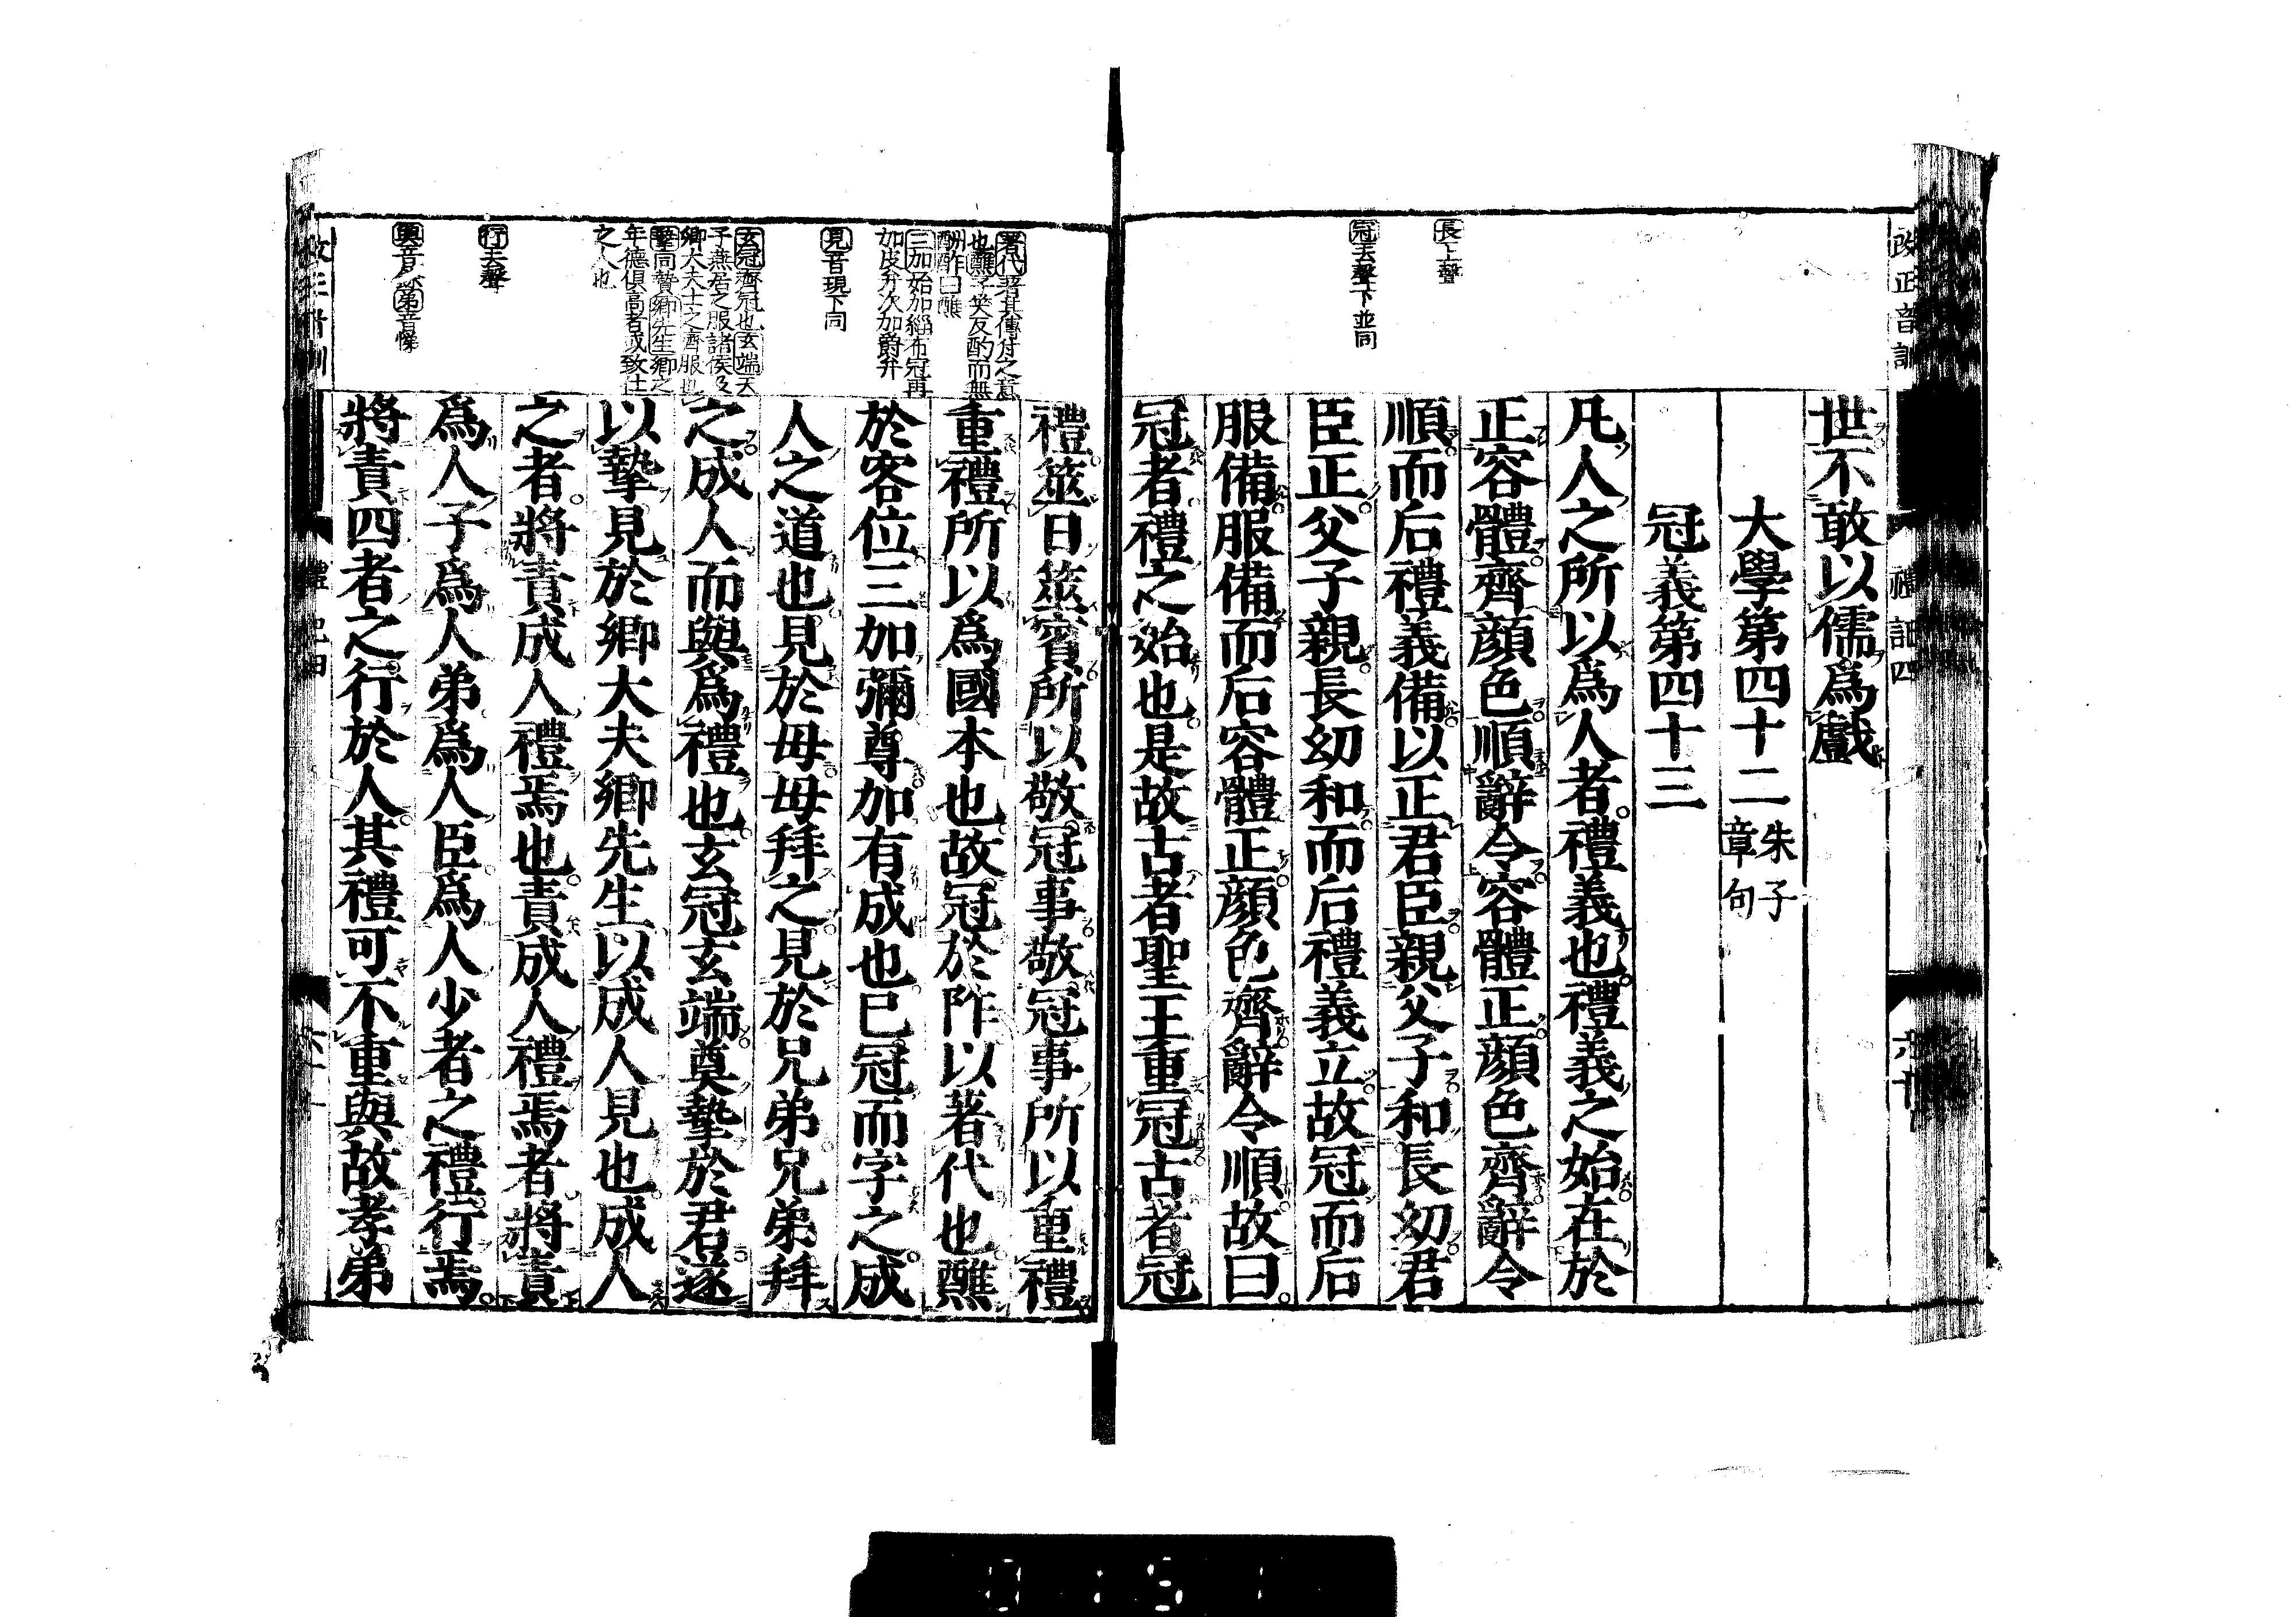 改正音訓
禮記四
長上聲
冠去聲下並同
世不敢以儒爲戲
大學第四十二 朱子
章句
冠義第四十三
凡人之所以爲人者禮義也禮義之始在於
正容體齊顏色順辭令容體正顏色齊辭令
順而后禮義備以正君臣親父子和長幼君
臣正父子親長幼和而后禮義立故冠而后
服備服備而后容體正顏色齊辭令順故曰
冠者禮之始也是故古者聖王重冠古者冠
著代著其傳付之意
也醮子笑反酌而無
酬酢曰醮
三加始加緇布冠再
加皮弁次加爵弁
見音現下同
玄冠齊冠也玄端天
子燕居之服諸侯及
卿大夫士之齊服也
摯同贄卿先生卿之
年德俱高者或致仕
之人也
行去聲
弟音悌
禮筮日筮賓所以敬冠事敬冠事所以重禮
重禮所以爲國本也故冠於阼以著代也醮
於客位三加彌尊加有成也已冠而字之成
人之道也見於母母拜之見於兄弟兄弟拜
之成人而與爲禮也玄冠玄端奠摯於君遂
以摯見於卿大夫卿先生以成人見也成人
之者將責成人禮焉也責成人禮焉者將責
爲人子爲人弟爲人臣爲人少者之禮行焉
將責四者之行於人其禮可不重與故孝弟
禮記四